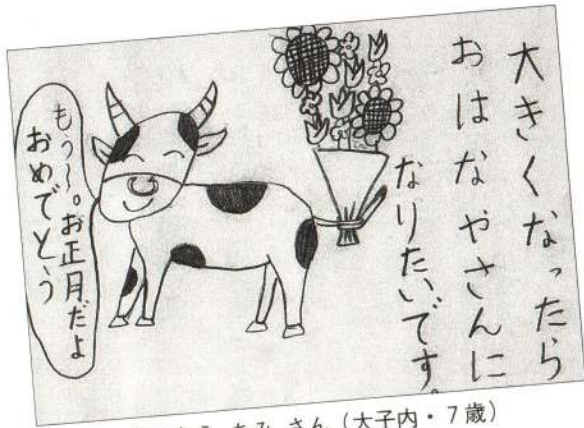 大きくなったら
おはなやさんに
なりたいです。
もぅ〜。お正月だよ
おめでとう
あみ さん（大子内・7歳）